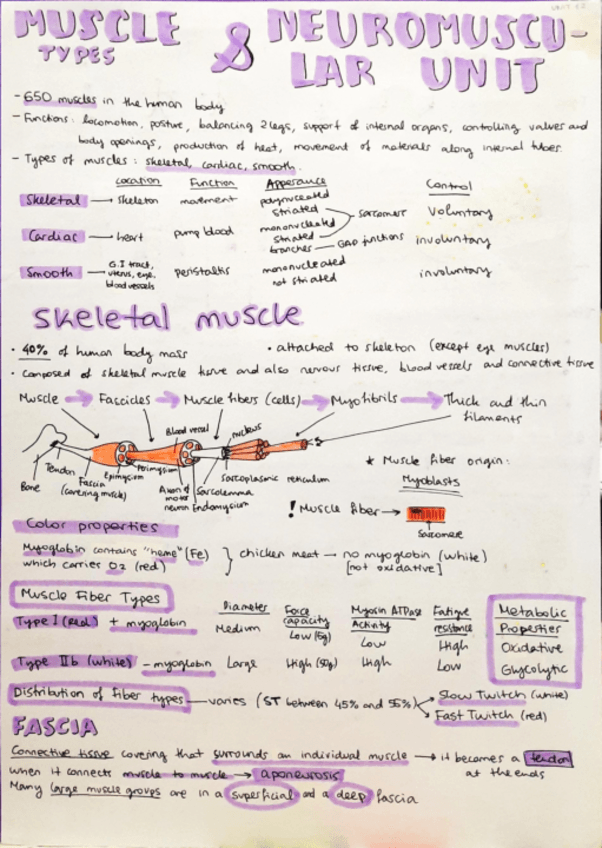 MUSCLE & NEUROMUSCU-
TYPES LAR UNIT
- 650 muscles in the human body
- Functions: locomotion, posture, balancing 2 legs, support of internal organs, controlling valves and
body openings, production of heat, movement of materials along internal tubes.
- Types of muscles: skeletal, cardiac, smooth.
Location Function Apperance Control
Skeletal → skeleton movement polynucleated striated Sarcomers Voluntary
Cardiac → heart pump blood mononucleated striated branches GAP junctions involuntary
Smooth → G.I tract, uterus, eye, blood vessels peristaltis mononucleated not striated involuntary
Skeletal muscle
• 40% of human body mass • attached to skeleton (except eye muscles)
• composed of skeletal muscle tissue and also nervous tissue, blood vessels and connective tissue
Muscle → Fascicles → Muscle fibers (cells) → Myofibrils → Thick and thin
filaments
Blood vessel
nucleus
Bone
Tendon
Fascia
(covering muscle)
Epimysium
Perimysium
Axon of
motor
neuron
Endomysium
Sarcolemma
Sarcoplasmic reticulum
★ Muscle fiber origin:
Myoblasts
! Muscle fiber →
Sarcomere
Color properties
Myoglobin contains "heme" (Fe)
which carries O2 (red)
} chicken meat → no myoglobin (white)
[not oxidative]
Muscle Fiber Types
Diameter Force capacity Myosin ATPase Activity Fatigue resistance Metabolic Properties
Type I (red) + myoglobin Medium Low (5g) Low High Oxidative
Type IIb (white) - myoglobin Large High (50g) High Low Glycolytic
Distribution of fiber types — varies (ST between 45% and 55%)
Slow Twitch (white)
Fast Twitch (red)
FASCIA
Connective tissue covering that surrounds an individual muscle → it becomes a tendon
at the ends
when it connects muscle to muscle → aponeurosis
Many large muscle groups are in a superficial and a deep fascia